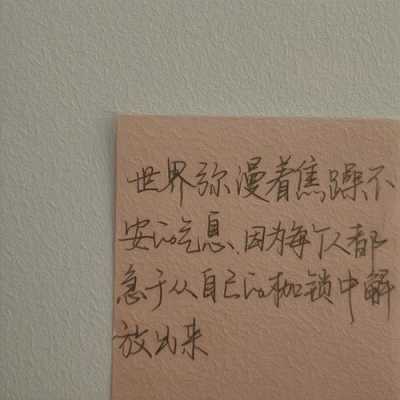 世界弥漫着焦躁不
安的气息、因为每个人都
急于从自己的枷锁中解
放出来